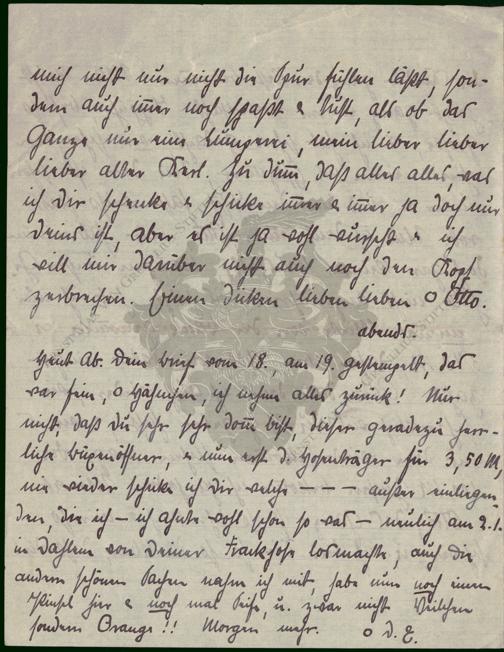 mich nicht nur nicht die Spur fühlen läßt, son-
dern auch immer noch spaßt & tut, als ob das
Ganze nur eine Lumperei, mein lieber lieber
lieber alter Kerl. Zu dumm, daß alles alles, was
ich dir schenke & schicke immer & immer ja doch nur
Deins ist, aber es ist ja wohl wurscht & ich
will mir darüber nicht auch noch den Kopf
zerbrechen. Einen dicken lieben lieben o Otto.
abends.
Heut Ab. Dein Brief vom 18., am 19. gestempelt, das
war fein, o Hähnchen, ich nehm alles zurück! Nur
nicht, daß du sehr sehr dumm bist, dieser geradezu herr-
liche Büxenöffner, & nun erst d. Hosenträger für 3,50 M,
nie wieder schicke ich dir welche – – – außer einliegen-
den, die ich – ich ahnte wohl schon so was – neulich am 2.1.
in Dahlem von Deiner Frackhose losmachte, auch die
andern schönen Sachen nahm ich mit, habe nun noch einen
Pinsel hier & noch mal Seife, u. zwar nicht Veilchen
sondern Orange!! Morgen mehr. o D. E.